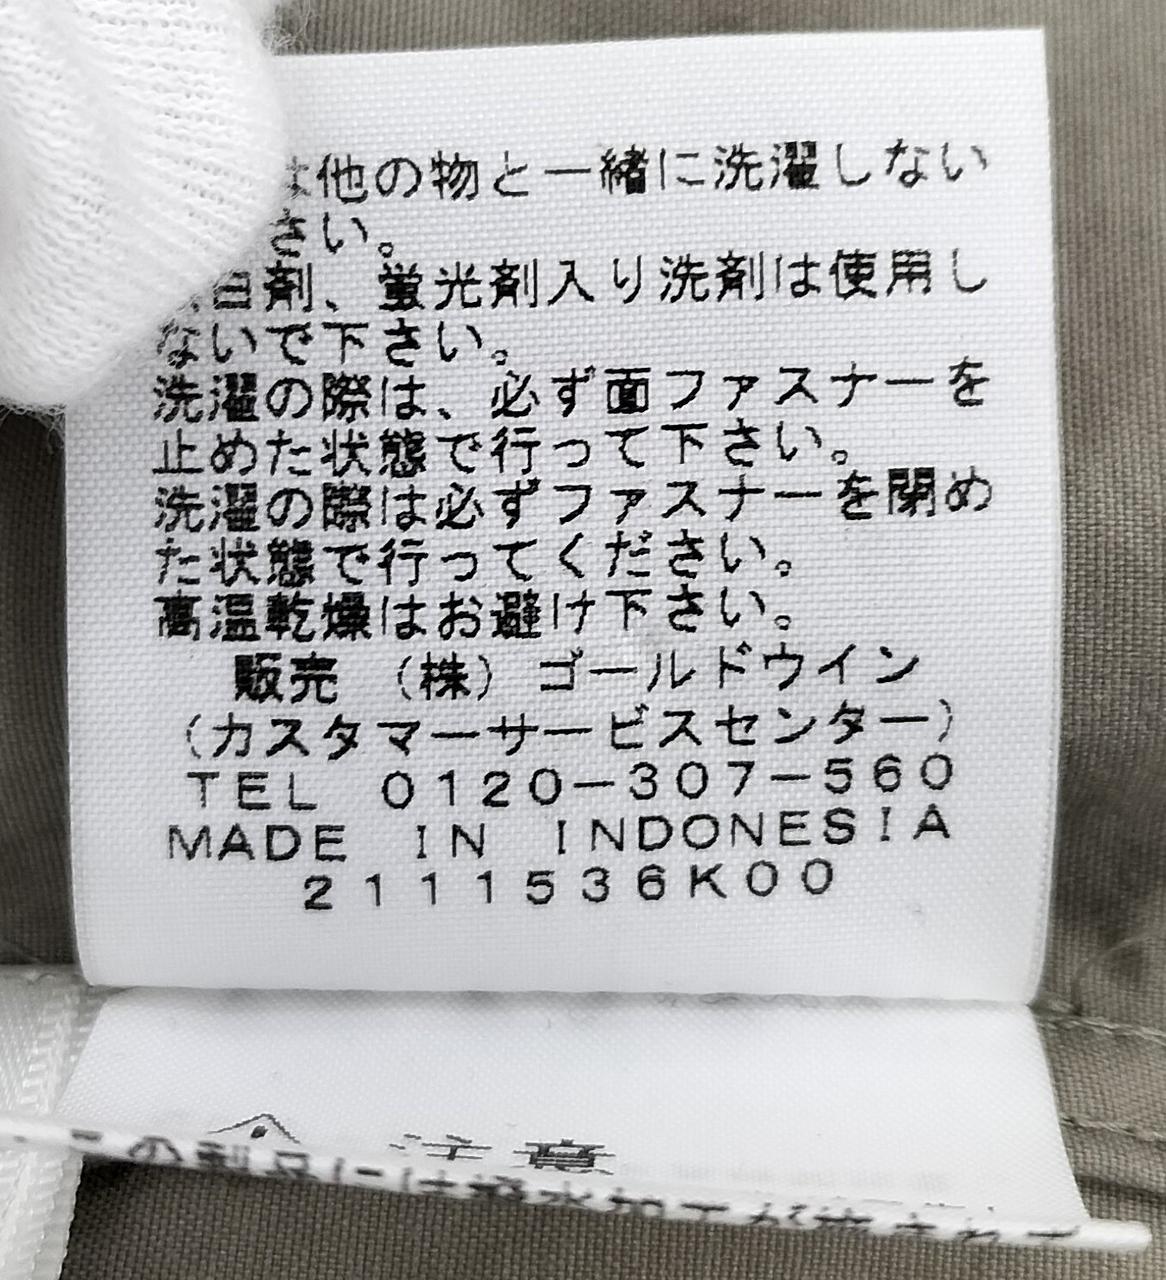 は他の物と一緒に洗濯しない
さい。
白剤、蛍光剤入り洗剤は使用し
ないで下さい。
洗濯の際は、必ず面ファスナーを
止めた状態で行って下さい。
洗濯の際は必ずファスナーを閉め
た状態で行ってください。
高温乾燥はお避け下さい。
販売 (株) ゴールドウイン
(カスタマーサービスセンター)
TEL 0120-307-560
MADE IN INDONESIA
2111536K00
注意
この製品には撥水加工が施されて